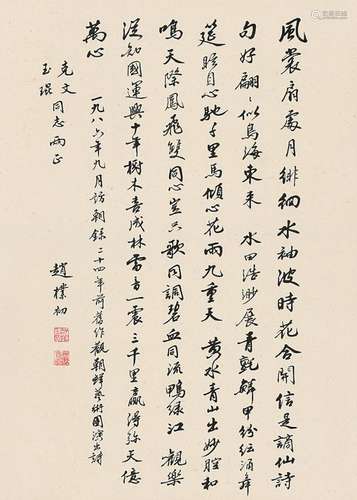 風裳扇處月徘徊水袖波時花合開信是謫仙詩
句好翩〻似鳥海東來 水田浩渺展青氈鱗甲紛紜涌舞
筵眩目心馳千里馬傾心花雨九重天 黃水青山出妙腔和
鳴天際鳳飛雙同心豈只歌同調碧血同流鴨綠江 觀樂
深知國運興十年樹木喜成林雷音一震三千里贏得弥天億
萬心
一九八六年九月訪朝錄二十四年前舊作觀朝鮮藝術團演出詩
克文
玉琨同志兩正
趙樸初